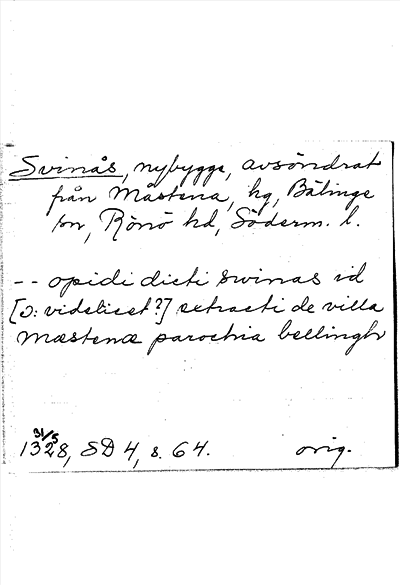 Svinås, nybygge, avsöndrat
från Måstena, hg, Bälinge
sn, Rönö hd, Söderm. l.
-- opidi dicti swinas id
[ɔ: videlicet?] retracti de villa
Mæstenæ parochia bellingh
31/5
1328, SD 4, s. 64. orig.